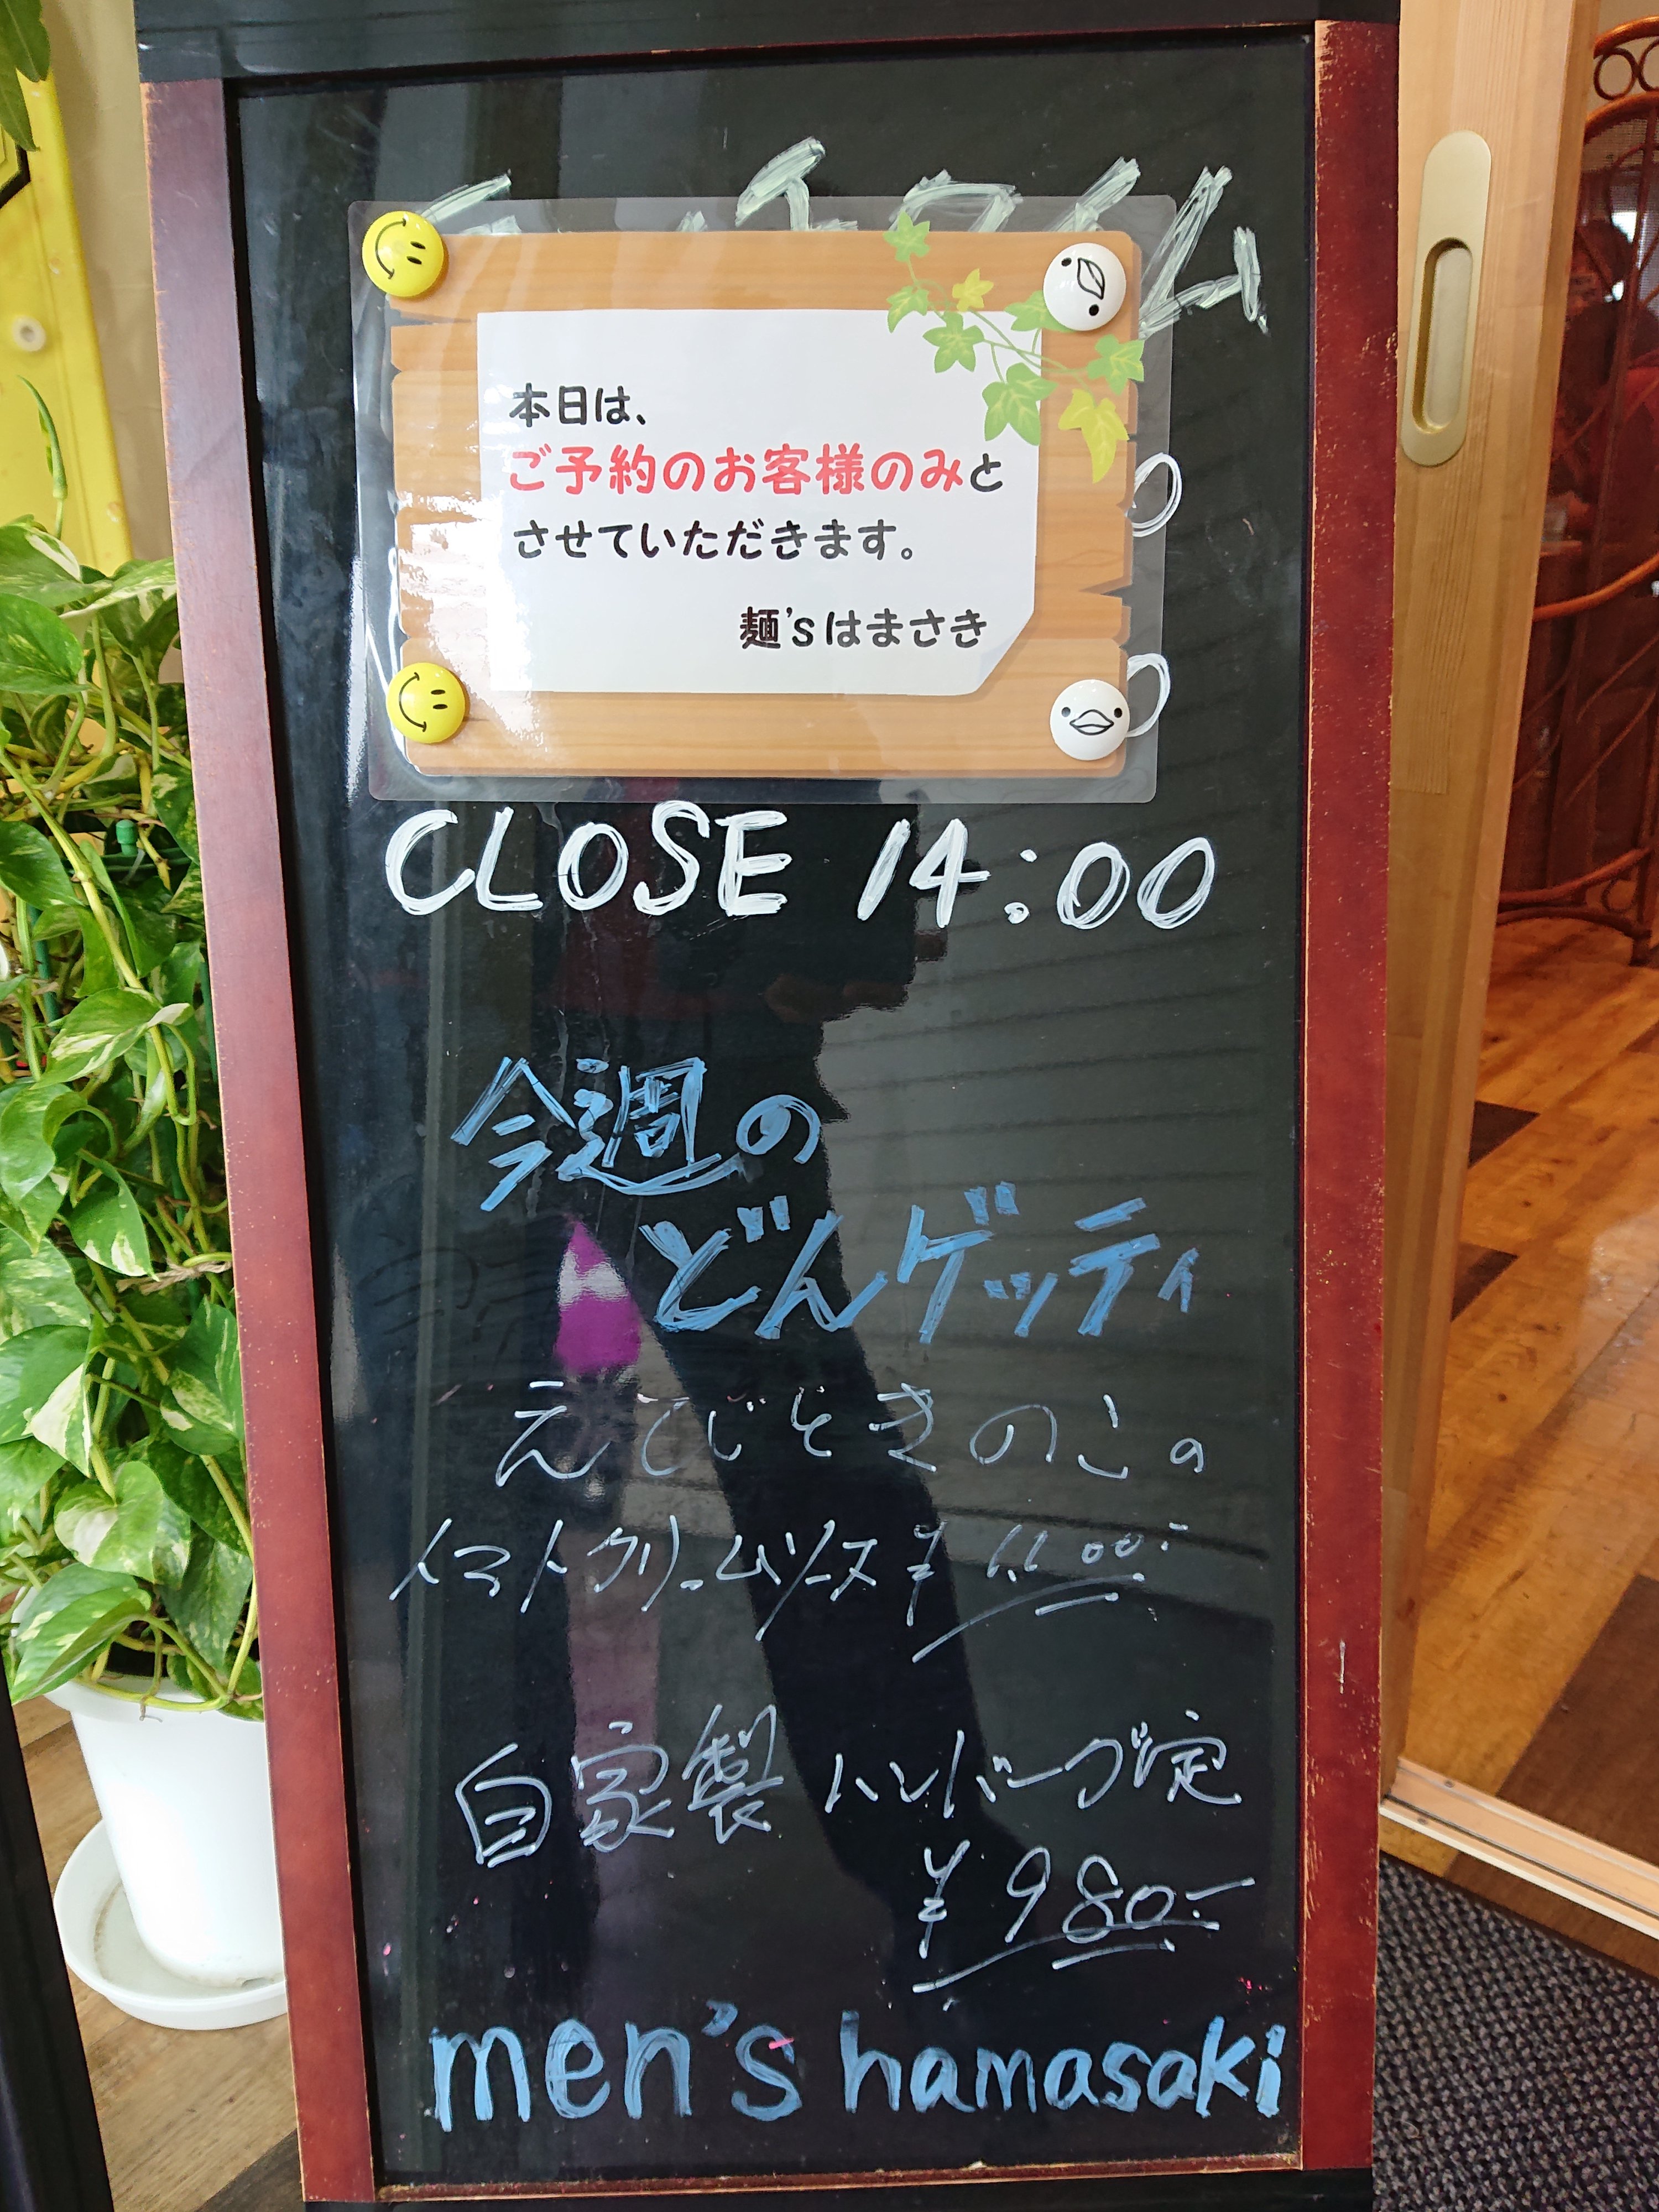 本日は、
ご予約のお客様のみと
させていただきます。
麺'sはまさき
CLOSE 14:00
今週の
どんゲッティ
えびときのこの
トマトクリームソース ¥1,100-
自家製 ハンバーグ定
¥980-
men's hamasaki